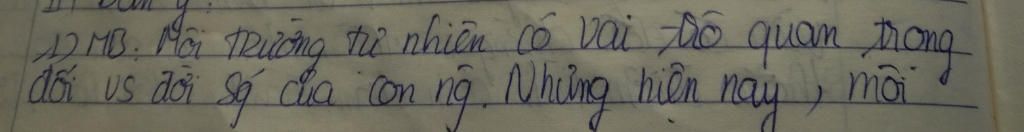 1) MB: Môi trường tự nhiên có vai trò quan trong
đối vs đời số của con ng. Nhưng hiện nay, môi